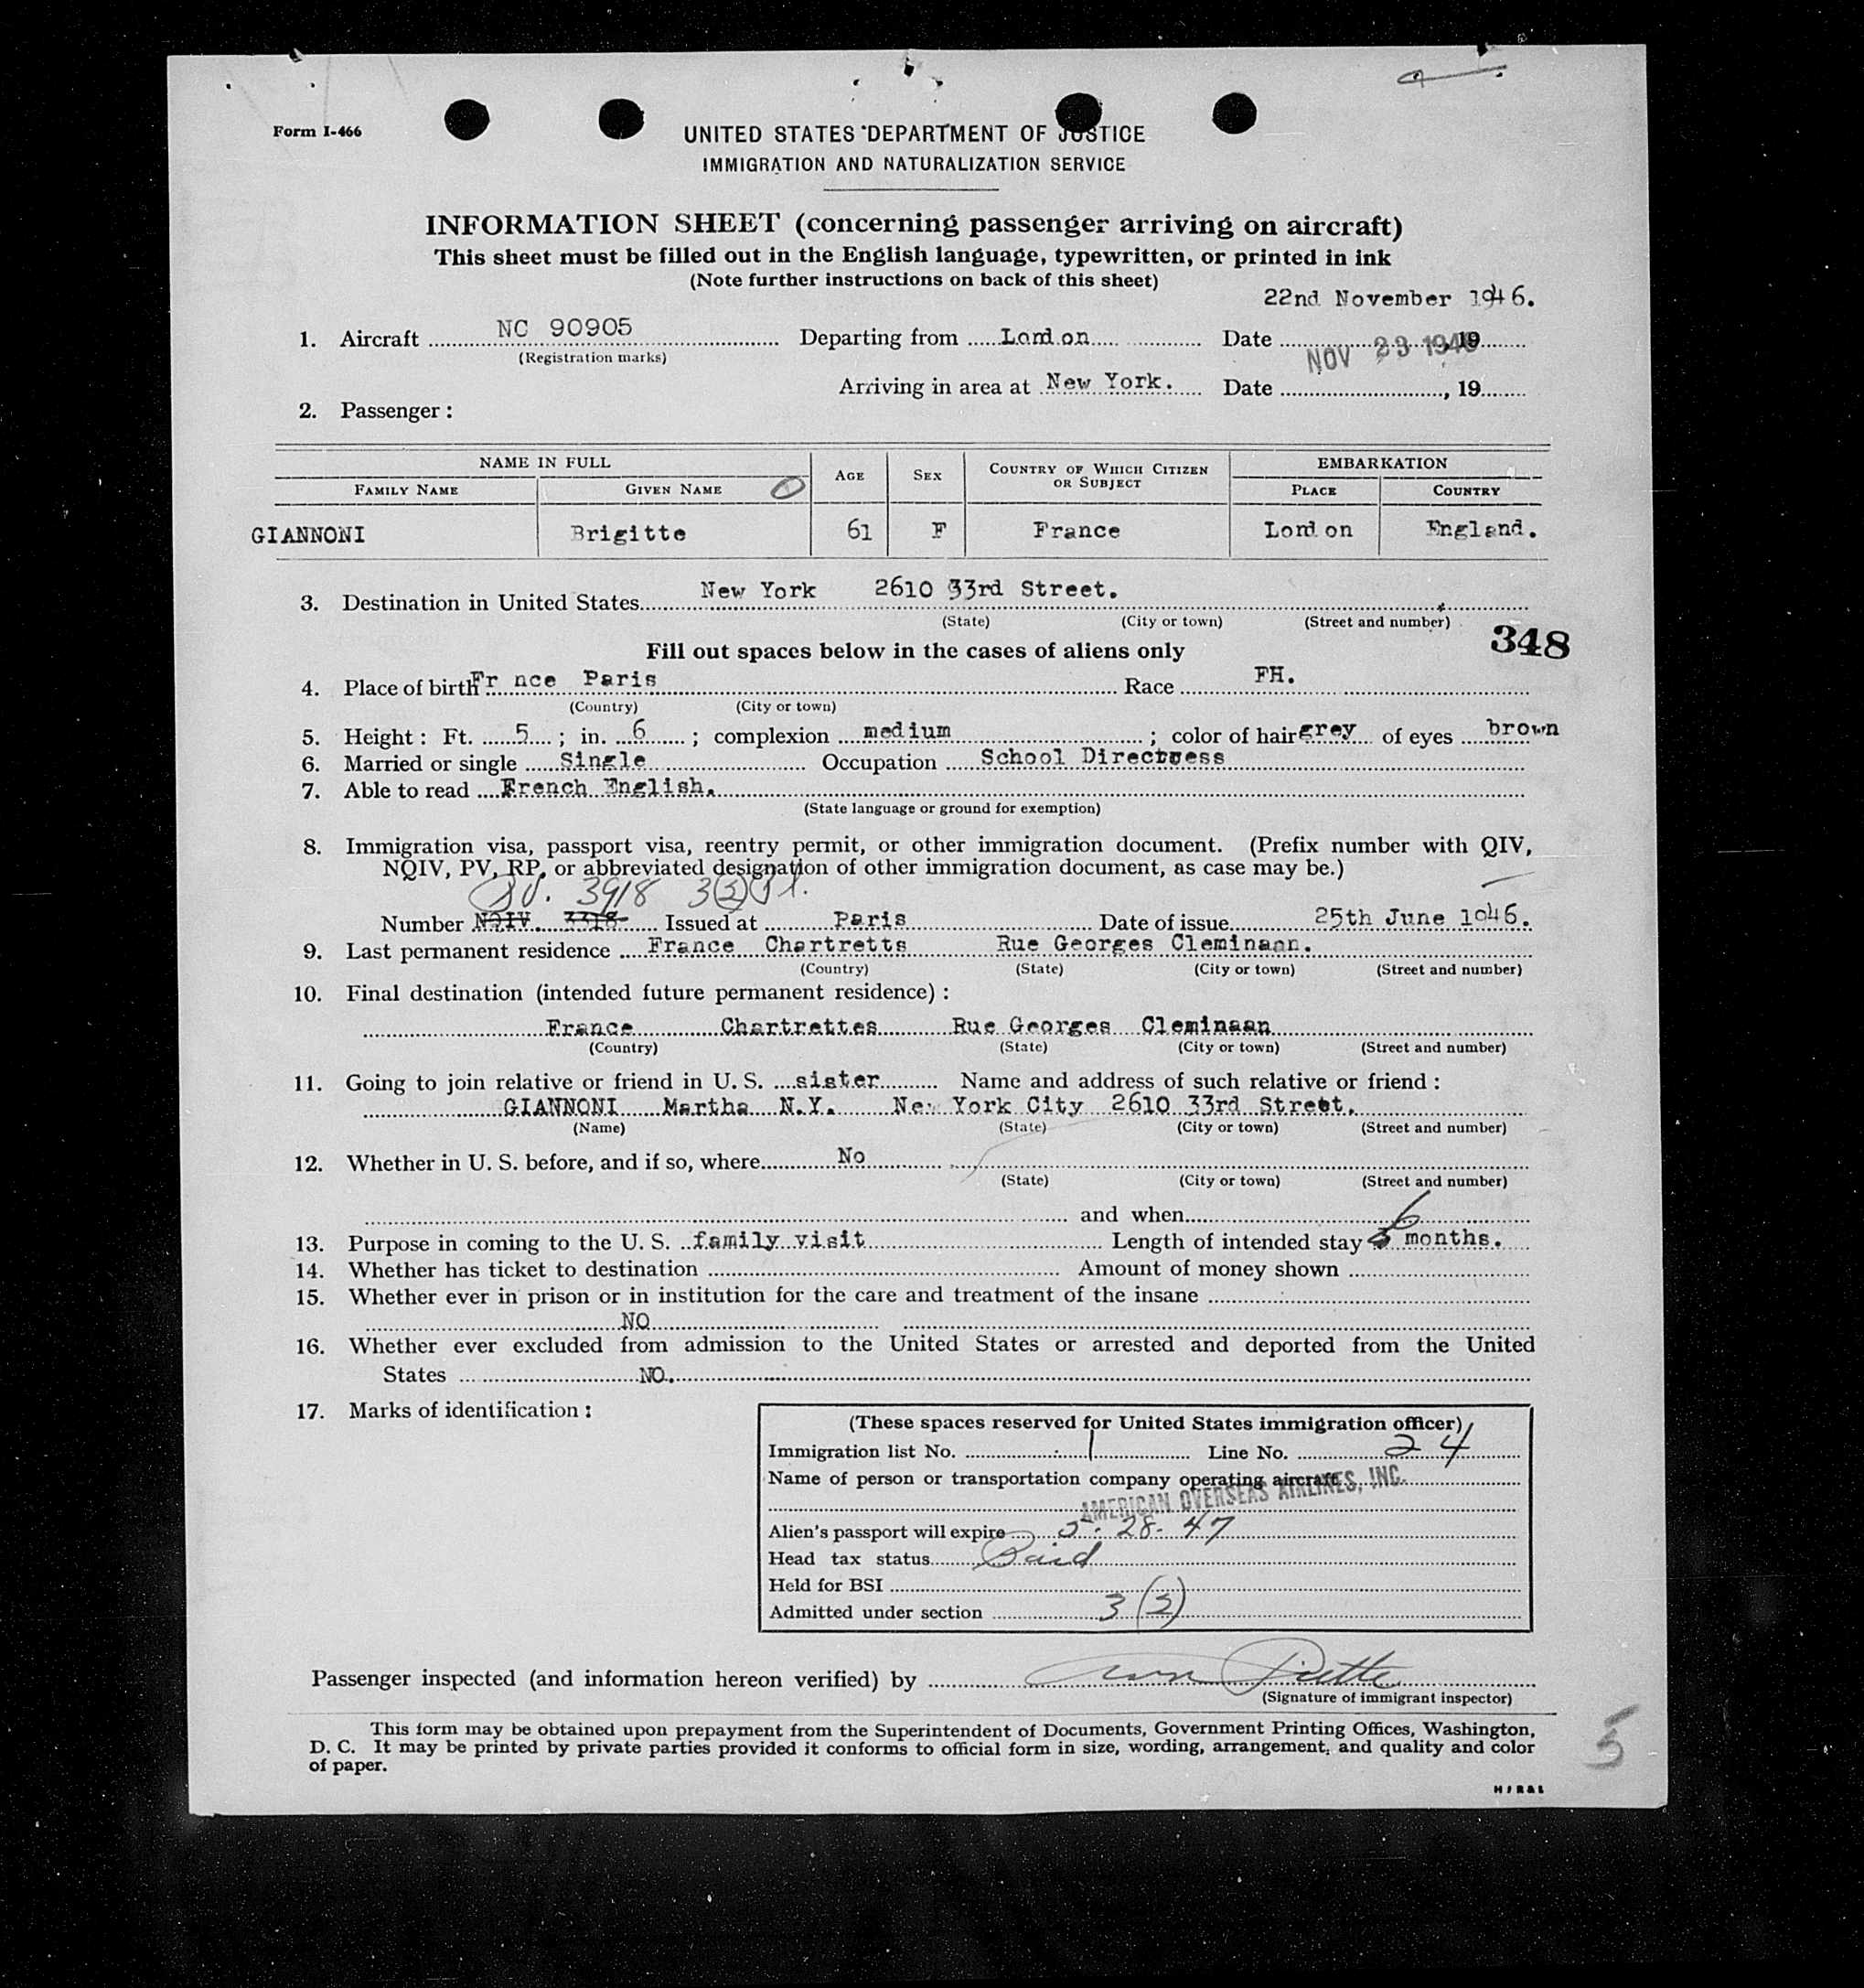 Form I-466
UNITED STATES DEPARTMENT OF JUSTICE
IMMIGRATION AND NATURALIZATION SERVICE
INFORMATION SHEET (concerning passenger arriving on aircraft)
This sheet must be filled out in the English language, typewritten, or printed in ink
(Note further instructions on back of this sheet)
22nd November 1946.
1. Aircraft NC 90905 Departing from London Date , 19
(Registration marks)
NOV 23 1946
Arriving in area at New York. Date , 19
2. Passenger:
NAME IN FULL AGE SEX COUNTRY OF WHICH CITIZEN OR SUBJECT EMBARKATION
FAMILY NAME GIVEN NAME PLACE COUNTRY
GIANNONI Brigitte 61 F France London England.
3. Destination in United States New York 2610 33rd Street.
(State) (City or town) (Street and number)
348
Fill out spaces below in the cases of aliens only
4. Place of birth Fr nce Paris Race FH.
(Country) (City or town)
5. Height: Ft. 5; in. 6; complexion medium; color of hair grey of eyes brown
6. Married or single Single Occupation School Directress
7. Able to read French English.
(State language or ground for exemption)
8. Immigration visa, passport visa, reentry permit, or other immigration document. (Prefix number with QIV,
NQIV, PV, RP, or abbreviated designation of other immigration document, as case may be.)
3918 3(2)
Number NQIV 3318 Issued at Paris Date of issue 25th June 1946.
9. Last permanent residence France Chartretts Rue Georges Cleminaan.
(Country) (State) (City or town) (Street and number)
10. Final destination (intended future permanent residence):
France Chartrettes Rue Georges Cleminaan
(Country) (State) (City or town) (Street and number)
11. Going to join relative or friend in U. S. sister Name and address of such relative or friend:
GIANNONI Martha N.Y. New York City 2610 33rd Street.
(Name) (State) (City or town) (Street and number)
12. Whether in U. S. before, and if so, where No
(State) (City or town) (Street and number)
and when
13. Purpose in coming to the U. S. family visit Length of intended stay 6 months.
14. Whether has ticket to destination Amount of money shown
15. Whether ever in prison or in institution for the care and treatment of the insane
NO
16. Whether ever excluded from admission to the United States or arrested and deported from the United
States NO.
17. Marks of identification:
(These spaces reserved for United States immigration officer)
Immigration list No. 1 Line No. 24
Name of person or transportation company operating aircraft
AMERICAN OVERSEAS AIRLINES, INC.
Alien's passport will expire 5-28-47
Head tax status Paid
Held for BSI
Admitted under section 3(2)
Passenger inspected (and information hereon verified) by
(Signature of immigrant inspector)
This form may be obtained upon prepayment from the Superintendent of Documents, Government Printing Offices, Washington,
D. C. It may be printed by private parties provided it conforms to official form in size, wording, arrangement, and quality and color
of paper.
5